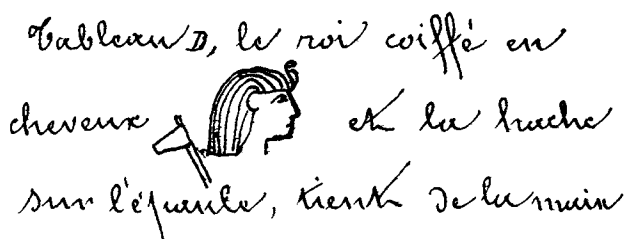 Tableau D, le roi coiffé en
cheveux et la hache
sur l'épaule, tient de la main